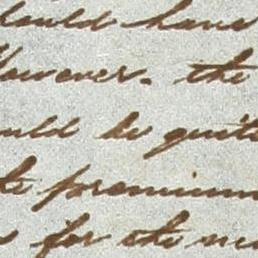 would have
However. the
would be quite
the premium
for the